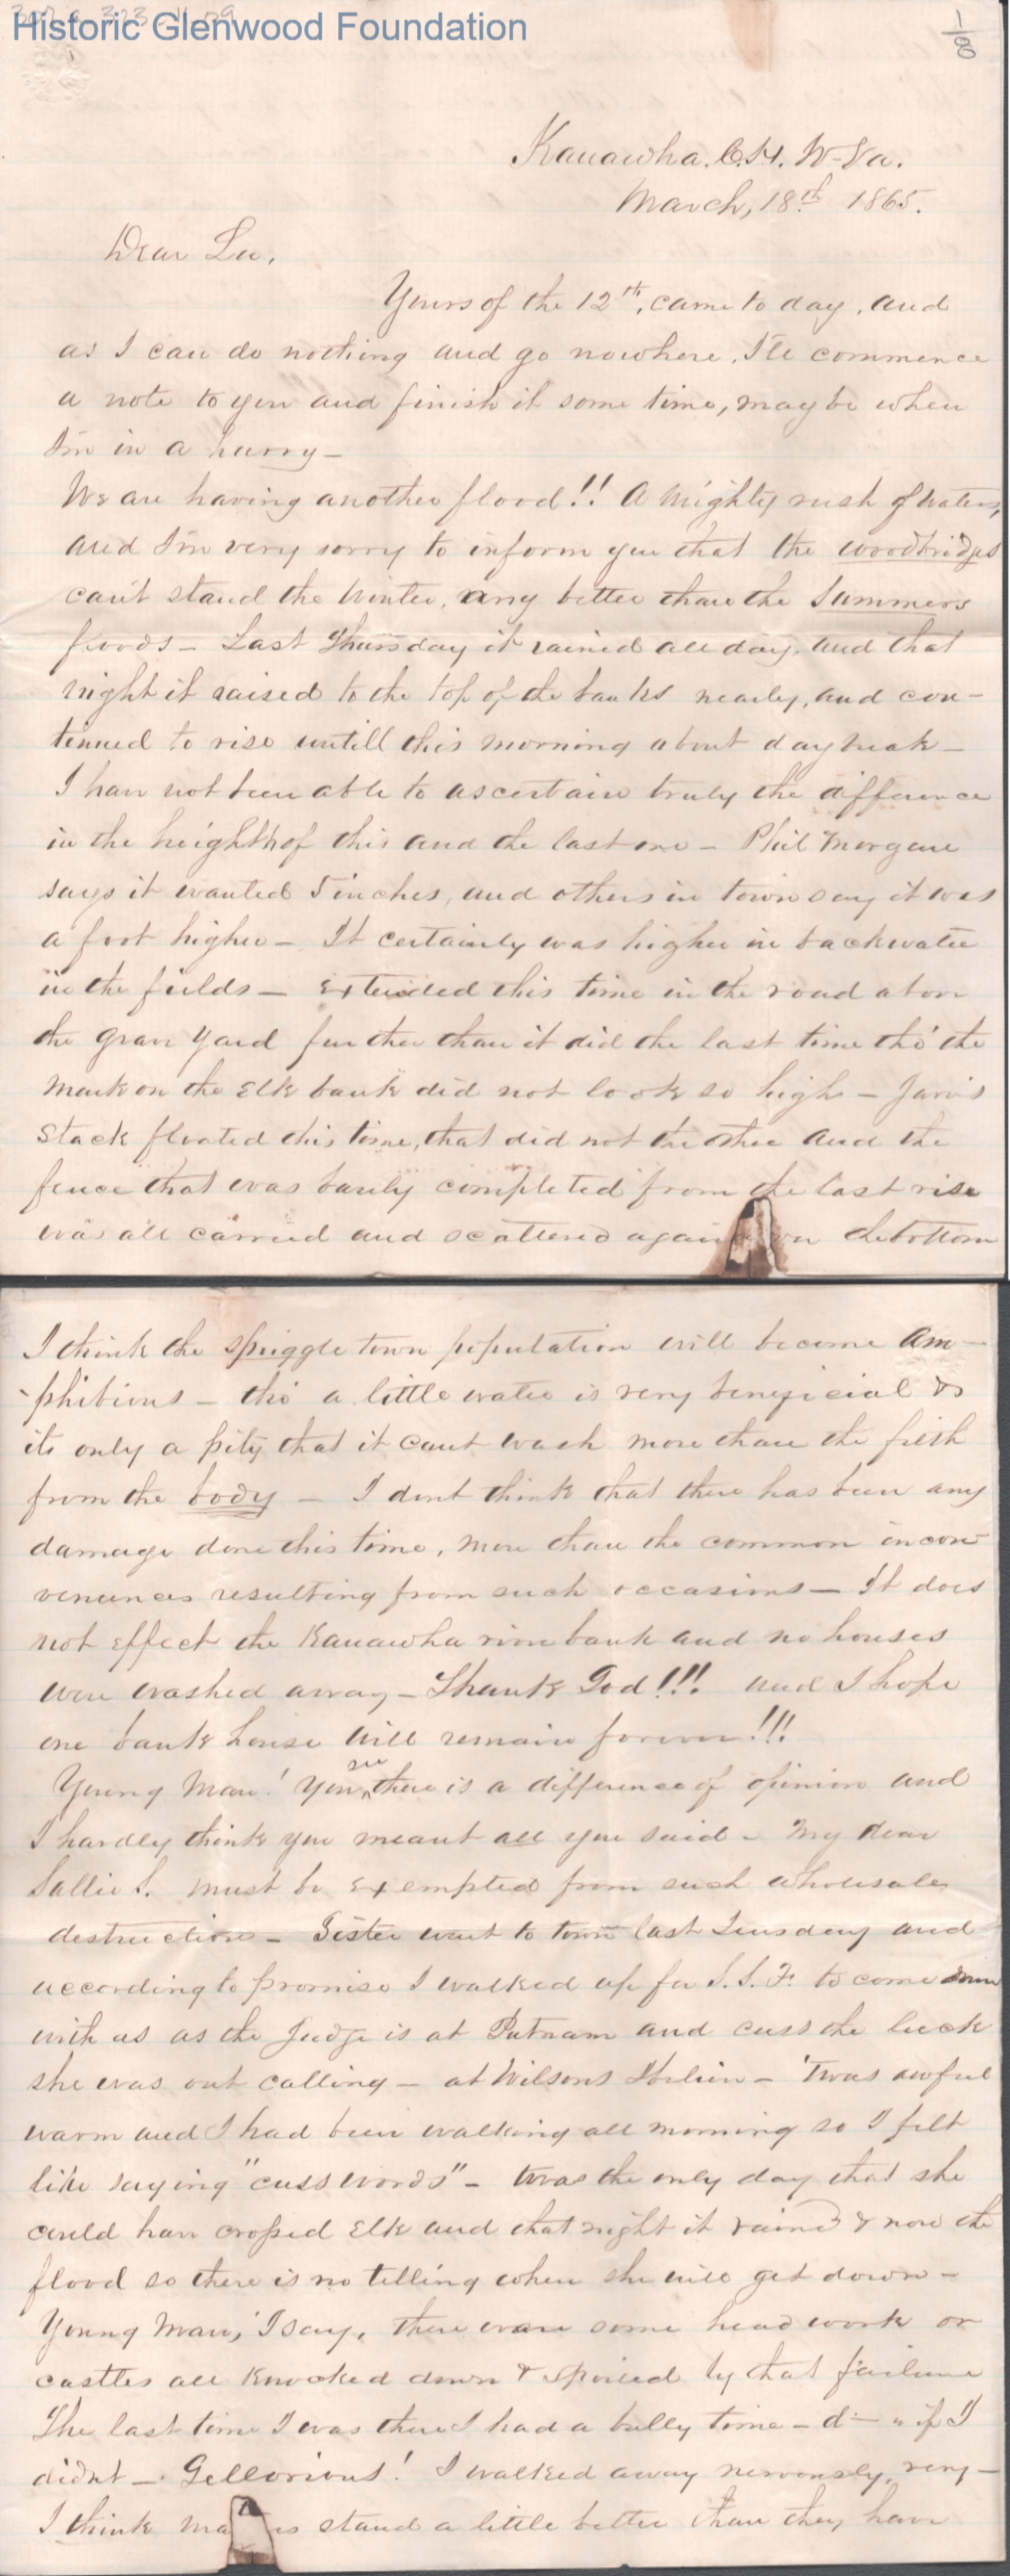 Historic Glenwood Foundation
1/8
Kanawha. C.H. W-Va.
March, 18th 1865.
Dear Lu,
Yours of the 12th, came to day, and
as I can do nothing and go nowhere, I'll commence
a note to you and finish it some time, may be when
I'm in a hurry—
We are having another flood!! A mighty rush of waters,
and I'm very sorry to inform you that the woodbridges
can't stand the Winter, any better than the Summers
floods— Last Thursday it rained all day, and that
night it raised to the top of the banks nearly, and con-
tinued to rise untill this morning about daybreak—
I have not been able to ascertain truly the difference
in the heighth of this and the last one— Phil Morgan
says it wanted 5 inches, and others in town say it was
a foot higher— It certainly was higher in backwater
in the fields— Extended this time in the road above
the grave yard further than it did the last time tho' the
mark on the Elk bank did not look so high— Jarvis
Stack floated this time, that did not the other and the
fence that was barely completed from the last rise
was all carried and scattered again on the bottom
I think the spriggle town population will become Am-
-phibious— tho' a little water is very beneficial &
its only a pity that it cant wash more than the filth
from the body— I dont think that there has been any
damage done this time, more than the common incon
veniences resulting from such occasions— It does
not effect the Kanawha river bank and no houses
were washed away— Thank God!!! and I hope
one bank house will remain forever!!!
Young Man! You see there is a difference of opinion and
I hardly think you meant all you said— My dear
Sallie S. must be exempted from such wholesale
destruction— Sister went to town last Tuesday and
according to promise I walked up for S.S.F. to come down
with us as the Judge is at Putnam and cuss the luck
she was out calling— at Wilsons— 'Twas awful
warm and I had been walking all morning so I felt
like saying "cuss words"— twas the only day that she
could have crossed Elk and that night it rained & now the
flood so there is no telling when she will get down—
Young Man, I say, there were some head work or
castles all knocked down & spoiled by that failure
The last time I was there I had a bully time— d— if I
didnt— Gellorious! I walked away nervously, very—
I think ma s stand a little better than they have